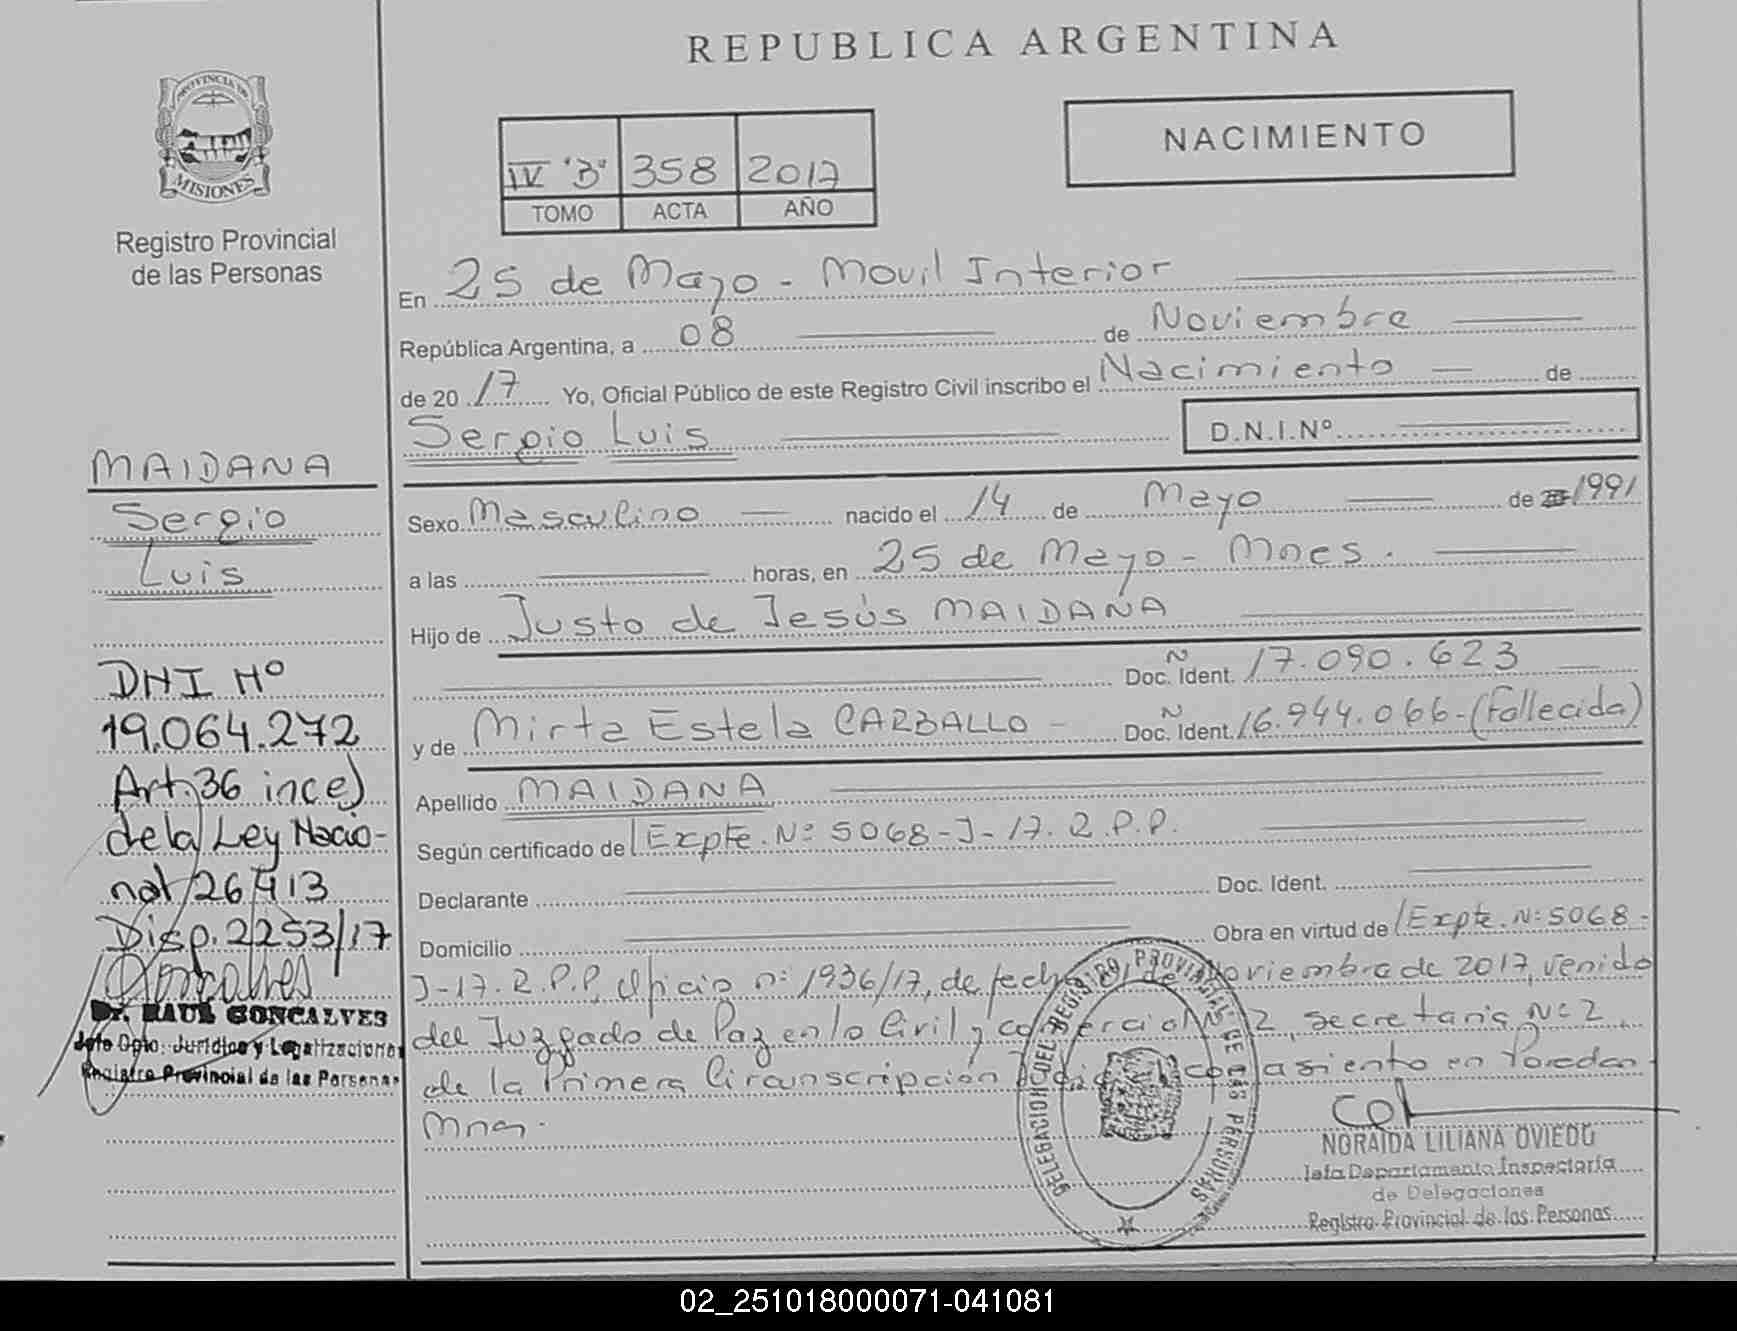 REPUBLICA ARGENTINA
PROVINCIA DE
MISIONES
Registro Provincial
de las Personas
NACIMIENTO
IV "B" 358 2017
TOMO ACTA AÑO
En 25 de Mayo - Movil Interior
República Argentina, a 08 de Noviembre
de 2017 Yo, Oficial Público de este Registro Civil inscribo el Nacimiento de
Sergio Luis D.N.I.Nº
Sexo Masculino nacido el 14 de Mayo de 1991
a las horas, en 25 de Mayo - Mnes.
Hijo de Justo de Jesús MAIDANA
Doc. Ident. N 17.090.623
y de Mirta Estela CARBALLO - Doc. Ident. N 16.944.066-(Fallecida)
Apellido MAIDANA
Según certificado de Expte. Nº 5068-J-17. R.P.P.
Declarante Doc. Ident.
Domicilio Obra en virtud de Expte. Nº 5068-
J-17. R.P.P, Oficio nº 1936/17, de fecha de Noviembre de 2017, venido
del Juzgado de Paz en lo Civil y comercial Nº 2, secretaria Nº 2
de la Primera Circunscripción con asiento en Posadas
Mnes.
MAIDANA
Sergio
Luis
DNI Nº
19.064.272
Art. 36 inc e)
de la Ley Nacio-
nal 26413
Disp. 2253/17
Dr. RAUL GONCALVES
Jefe Dpto. Jurídico y Legalizaciones
Registro Provincial de las Personas
DELEGACION DEL REGISTRO PROVINCIAL DE LAS PERSONAS
NORAIDA LILIANA OVIEDO
Jefa Departamento Inspectoría
de Delegaciones
Registro Provincial de las Personas
02_251018000071-041081